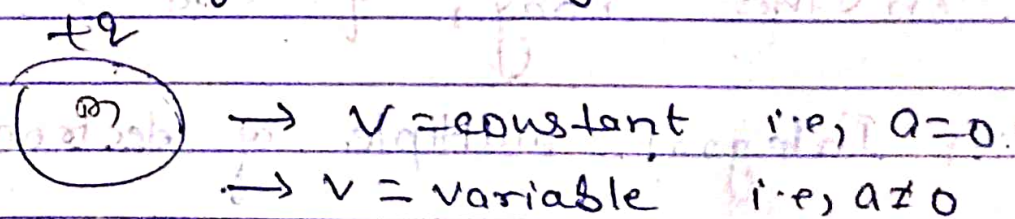 +q
m → v = constant i.e, a=0.
→ v = variable i.e, a≠0